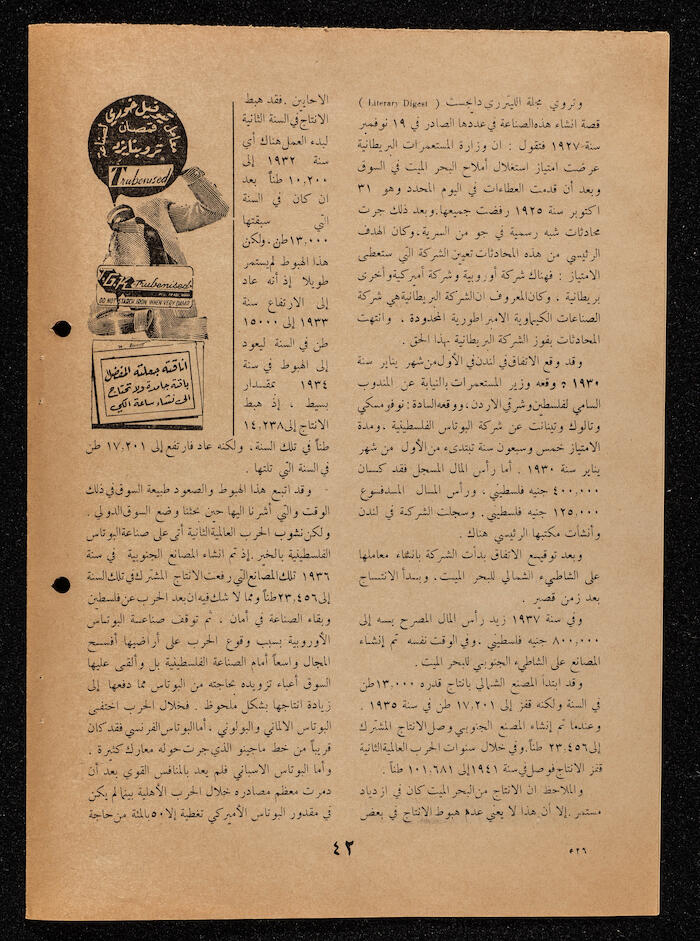 وتروي مجلة الليترري دايجست ( Literary Digest )
قصة انشاء هذه الصناعة في عددها الصادر في ١٩ نوفمبر
سنة ١٩٢٧ فتقول : ان وزارة المستعمرات البريطانية
عرضت امتياز استغلال أملاح البحر الميت في السوق
وبعد أن قدمت العطاءات في اليوم المحدد وهو ٣١
اكتوبر سنة ١٩٢٥ رفضت جميعها . وبعد ذلك جرت
محادثات شبه رسمية في جو من السرية . وكان الهدف
الرئيسي من هذه المحادثات تعيين الشركة التي ستعطى
الامتياز : فهناك شركة أوروبية وشركة أميركية وأخرى
بريطانية . وكان المعروف ان الشركة البريطانية هي شركة
الصناعات الكيماوية الامبراطورية المحدودة . وانتهت
المحادثات بفوز الشركة البريطانية بهذا الحق .
وقد وقع الاتفاق في لندن في الأول من شهر يناير سنة
١٩٣٠ وقعه وزير المستعمرات والنيابة عن المندوب
السامي لفلسطين وشرقي الاردن ، ووقعه السادة : نوفومسكي
وتالوك وتينانت عن شركة البوتاس الفلسطينية ، ومدة
الامتياز خمس وسبعون سنة تبتدىء من الأول من شهر
يناير سنة ١٩٣٠ . أما رأس المال المسجل فقد كسان
٤٠٠,٠٠٠ جنيه فلسطيني . ورأس المسال المسدفسوع
١٢٥,٠٠٠ جنيه فلسطيني . وسجلت الشركة في لندن
وأنشأت مكتبها الرئيسي هناك .
وبعد توقيع الاتفاق بدأت الشركة بانشاء معاملها
على الشاطىء الشمالي للبحر الميت . وبسدأ الانتساج
بعد زمن قصير .
وفي سنة ١٩٣٧ زيد رأس المال المصرح بسه إلى
٨٠٠,٠٠٠ جنيه فلسطيني . وفي الوقت نفسه تم إنشاء
المصانع على الشاطىء الجنوبي للبحر الميت .
وقد ابتدأ المصنع الشمالي بانتاج قدره ١٣,٠٠٠ طن
في السنة ولكنه قفز إلى ١٧,٢٠١ طن في سنة ١٩٣٥ .
وعندما تم إنشاء المصنع الجنوبي وصل الانتاج المشترك
إلى ٢٣,٤٥٦ طناً . وفي خلال سنوات الحرب العالمية الثانية
قفز الانتاج فوصل في سنة ١٩٤١ إلى ١٠١,٦٨١ طناً .
والملاحظ ان الانتاج من البحر الميت كان في ازدياد
مستمر . إلا أن هذا لا يعني عدم هبوط الانتاج في بعض
الاحايين . فقد هبط
الانتاج في السنة الثانية
لبدء العمل هناك أي
سنة ١٩٣٢ إلى
١٠,٢٠٠ طناً بعد
ان كان في السنة
التي سبقتها
١٣,٠٠٠ طن . ولكن
هذا الهبوط لم يستمر
طويلا إذ أنه عاد
إلى الارتفاع سنة
١٩٣٣ إلى ١٥٠٠٠
طن في السنة ليعود
إلى الهبوط في سنة
١٩٣٤ بمقسدار
بسيط ، إذ هبط
الانتاج إلى ١٤,٢٣٨
طناً في تلك السنة ، ولكنه عاد فارتفع إلى ١٧,٢٠١ طن
في السنة التي تلتها .
وقد اتبع هذا الهبوط والصعود طبيعة السوق في ذلك
الوقت والتي أشرنا اليها حين بحثنا وضع السوق الدولي .
ولكن نشوب الحرب العالمية الثانية أتى على صناعة البوتاس
الفلسطينية بالخير . إذ تم انشاء المصانع الجنوبية في سنة
١٩٣٦ تلك المصانع التي رفعت الانتاج المشترك في تلك السنة
إلى ٢٣,٤٥٦ طناً ومما لا شك فيه ان بعد الحرب عن فلسطين
وبقاء الصناعة في أمان ، ثم توقف صناعسة البوتساس
الأوروبية بسبب وقوع الحرب على أراضيها أفسسح
المجال واسعاً أمام الصناعة الفلسطينية بل وألقى عليها
السوق أعباء تزويده بحاجته من البوتاس مما دفعها إلى
زيادة انتاجها بشكل ملحوظ . فخلال الحرب اختفى
البوتاس الالماني والبولوني . أما البوتاس الفرنسي فقد كان
قريباً من خط ماجينو الذي جرت حوله معارك كثيرة .
وأما البوتاس الاسباني فلم يعد بالمنافس القوي بعد أن
دمرت معظم مصادره خلال الحرب الأهلية بينما لم يكن
في مقدور البوتاس الأميركي تغطية إلا ٥٠ بالمئة من حاجة
معامل
خوري
قمصان
تروبنايزد
Trubenised
G.K. Trubenised
DO NOT STARCH IRON WHEN VERY DAMP
اناقته جعلته المفضل
ياقته جامدة ولا تحتاج
الى نشاء ساعة الكي
٤٢
٥٢٦